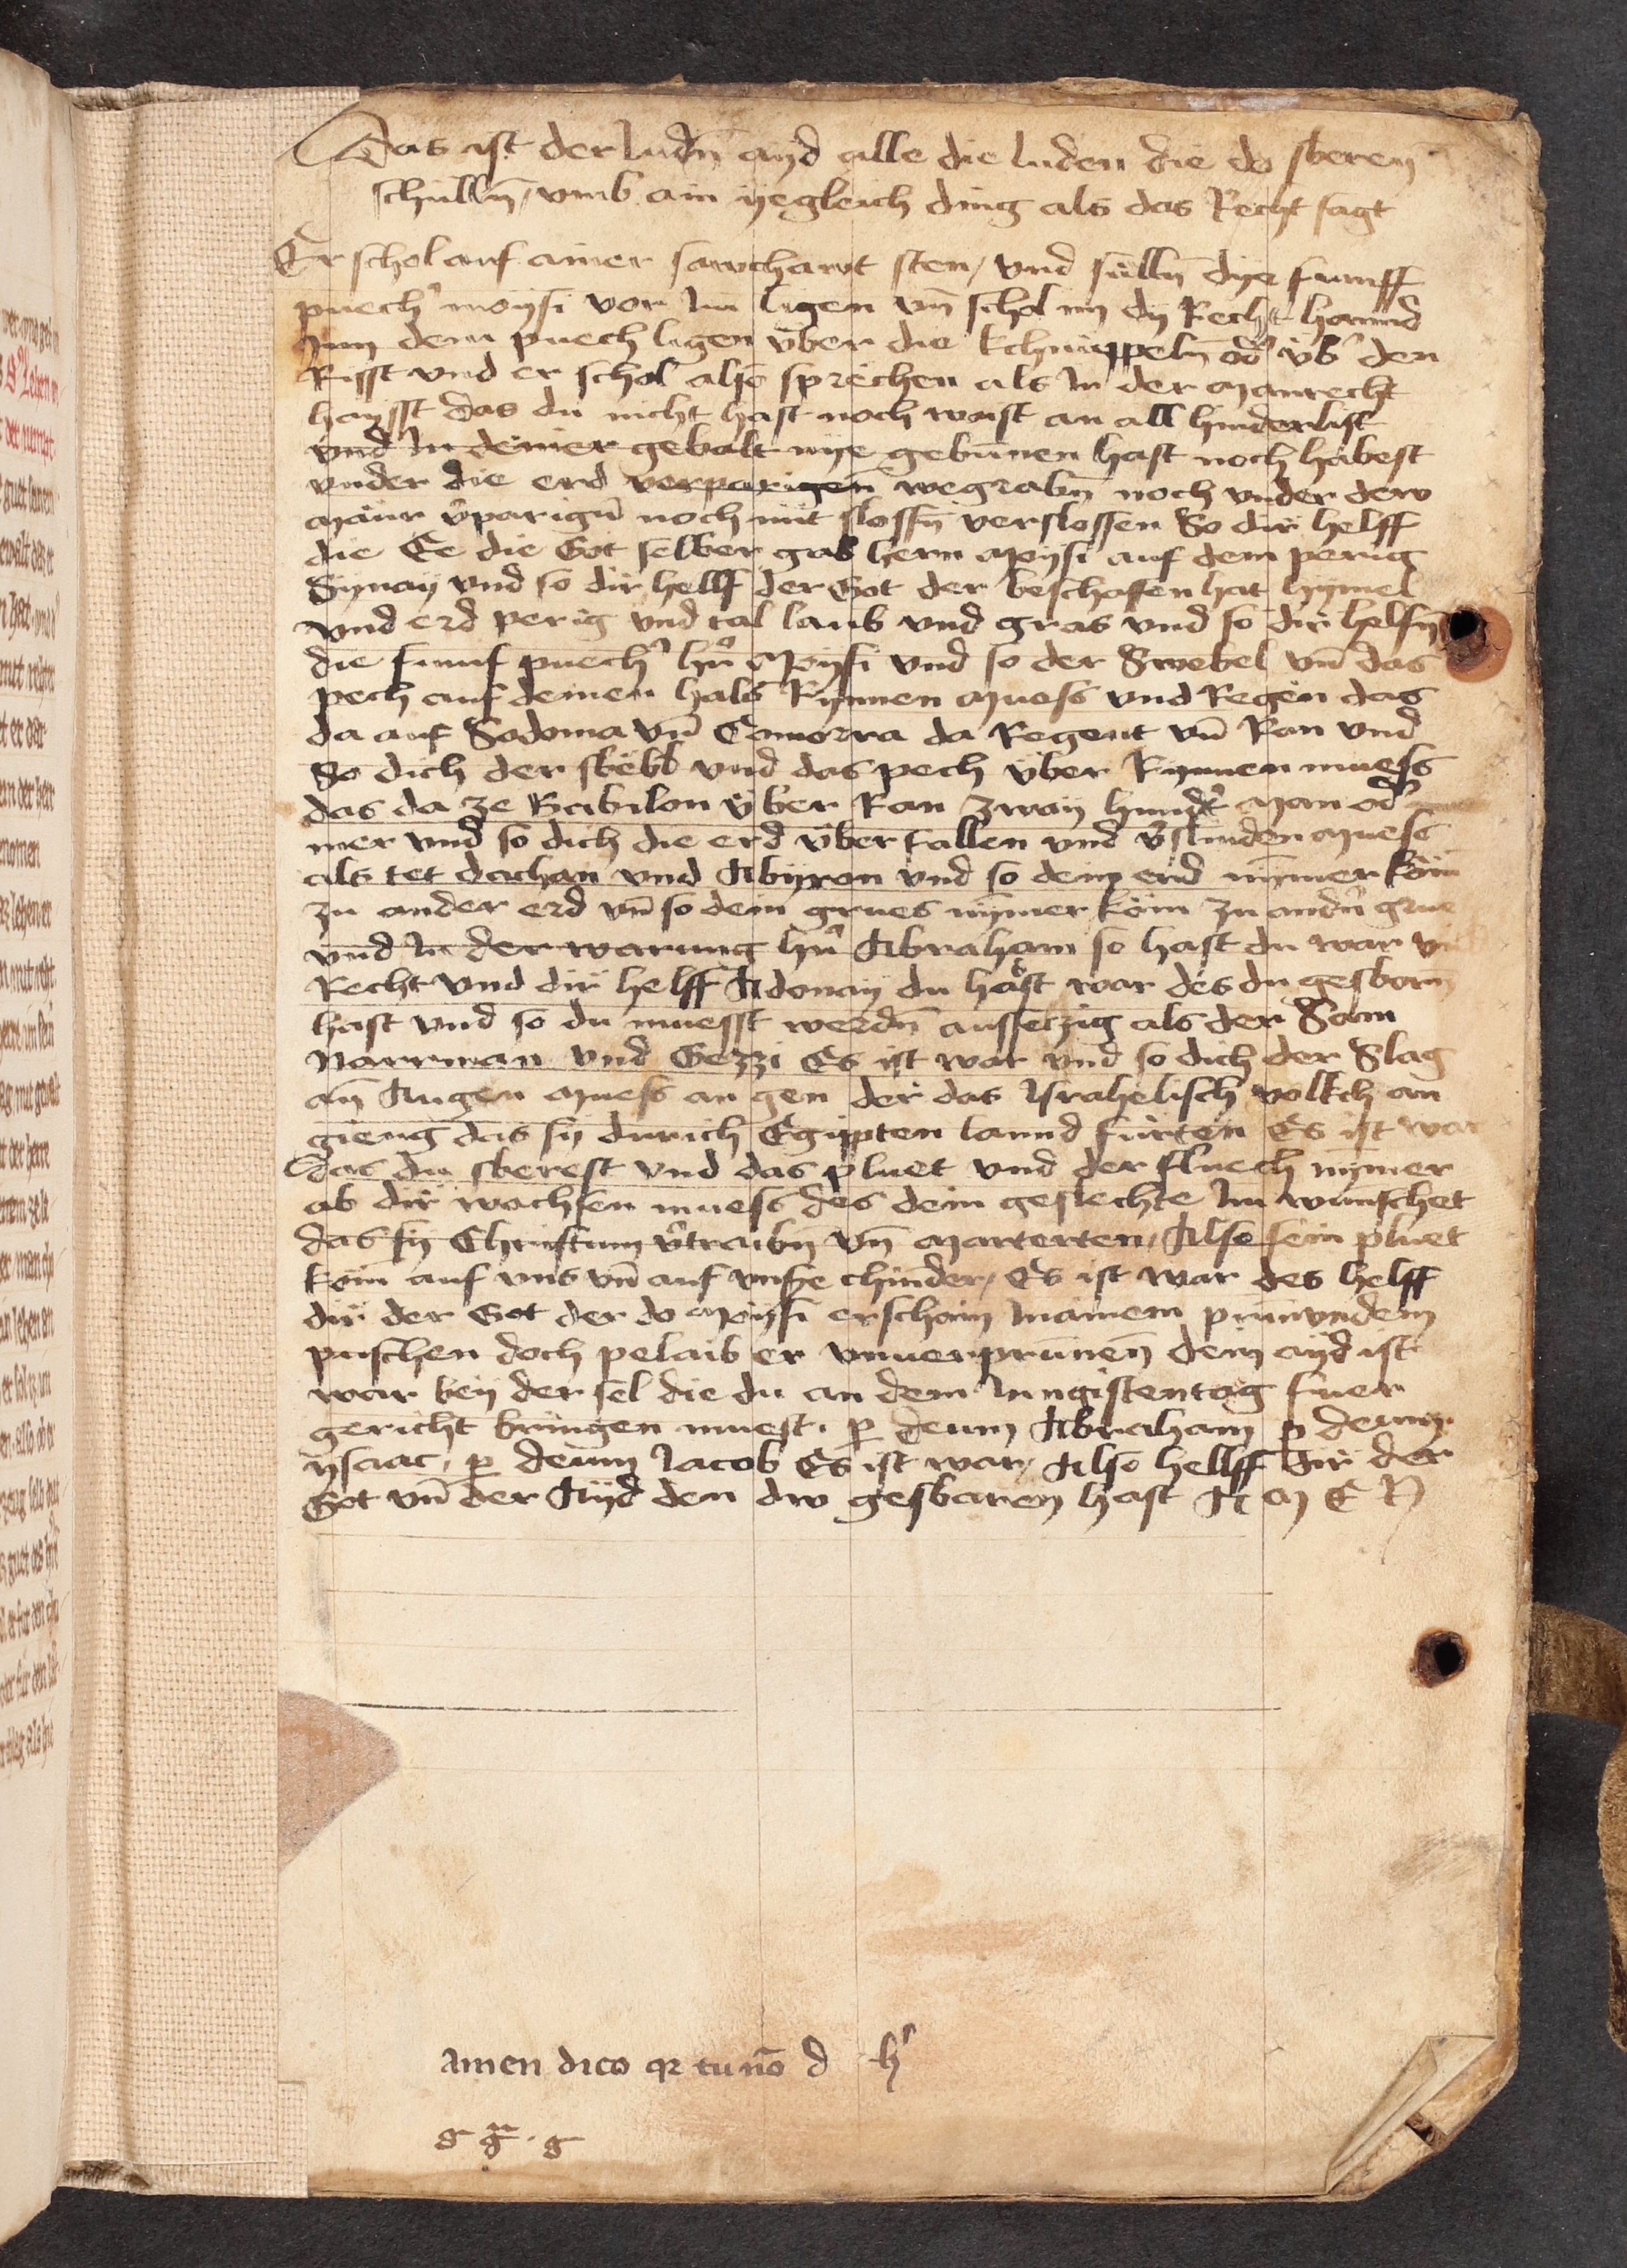 Das ist der Judn̄ ayd alle die Juden die do sberen
schulln̄ / vmb ain yegleich ding als das Recht sagt
Er schol auf ainer sawchawt sten / vnd sülln̄ dye funnff
puech' moysi vor Im ligen vn̄ schol im dy Recht hannd
Inn dem puech ligen v̈ber die kchnüppeln̄ od' v̈b' den
Risst vnd er schol also sprechen als In der Manrecht
haysst das du nicht hast noch waist an all hinderlist
vnd In deiner gebalt nye gebunnen hast noch habest
vnder die erd verparigen wegrabn̄ noch vnder derv
Maür v'parign̄ noch mit slossn̄ verslossen So dir helff
die Ee die Got selber gab hern Moysi auf dem perig
Synay vnd so dir hellf der Got der beschaffen hat hymel
vnd erd perig vnd tal laub vnd gras vnd so dir helfn̄
die funf puech' hn̄ Moysi vnd so der Swebel vn̄ das
pech auf deinen hals Rynnen Muess vnd Regen das
da auf Sodoma vn̄ Comorra da Regent vn̄ Ran vnd
So dich der sbëbl vnd das pech v̈ber Rynnen muess
das da ze Babilon v̈ber Ran zway hund't Man od'
mer vnd so dich die erd v̈ber fallen vnd v'slinden Muess
als tet dathan vnd Abyron vnd so dein erd nymer köm
zu ander erd vn̄ so dein grues nymer köm zu andn̄ grue
vnd In der warung hn̄ Abraham so hast du war
Recht vnd dir helff Adonay du hast war des du gesborn
hast vnd so du muesst werdn̄ aussetzig als der Sam
Narrman vnd Gezzi Es ist war vnd so dich der Slag
an Augen Muess an gen der das Israhelisch volkch an
gieng das sy durich Egypten lannd fürten Es ist war
das du sberest vnd das pluet vnd der fluech nymer
ab dir wachsen muess des dein geslechte Im wunschet
das sy Christum v'traibn vn̄ Marterten / Also sein pluet
köm auf vns vn̄ auf vnsre chinder / Es ist war des helff
dir der Got der do Moysi erschain Inainem prinvndem
puschen doch pelaib er vnuerprunnen̄ dein ayd ist
war bey der sel die du an dem Jungistentag fuer
gericht bringen muest · p̱ deum Abraham p̱ deum
ysaac / p̱ deum Jacob Es ist war / Also hellff dir der
Got vn̄ der Ayd den dw gesbaren hast A M E N
amen dico qꝛ tu nō d h'
g g · g